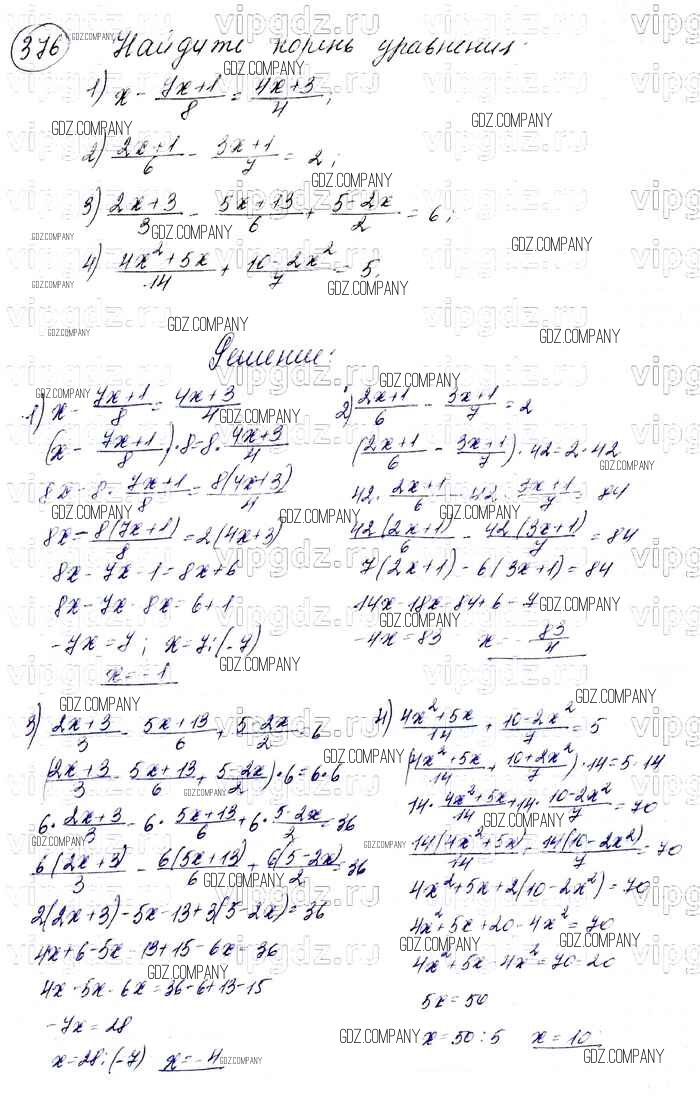 376 Найдите корень уравнения:
1) x - (7x+1)/8 = (4x+3)/4;
2) (2x+1)/6 - (3x+1)/7 = 2;
3) (2x+3)/3 - (5x+13)/6 + (5-2x)/2 = 6;
4) (4x²+5x)/14 + (10-2x²)/7 = 5.
Решение:
1) x - (7x+1)/8 = (4x+3)/4
(x - (7x+1)/8)·8 = 8·(4x+3)/4
8x - 8·(7x+1)/8 = 8(4x+3)/4
8x - 8(7x+1)/8 = 2(4x+3)
8x - 7x - 1 = 8x+6
8x - 7x - 8x = 6+1
-7x = 7; x = 7:(-7)
x = -1
2) (2x+1)/6 - (3x+1)/7 = 2
((2x+1)/6 - (3x+1)/7)·42 = 2·42
42·(2x+1)/6 - 42·(3x+1)/7 = 84
42(2x+1)/6 - 42(3x+1)/7 = 84
7(2x+1) - 6(3x+1) = 84
14x - 18x = 84+6-7
-4x = 83 x = -83/4
3) (2x+3)/3 - (5x+13)/6 + (5-2x)/2 = 6
((2x+3)/3 - (5x+13)/6 + (5-2x)/2)·6 = 6·6
6·(2x+3)/3 - 6·(5x+13)/6 + 6·(5-2x)/2 = 36
6(2x+3)/3 - 6(5x+13)/6 + 6(5-2x)/2 = 36
2(2x+3) - 5x - 13 + 3(5-2x) = 36
4x+6-5x-13+15-6x = 36
4x-5x-6x = 36-6+13-15
-7x = 28
x = 28:(-7) x = -4
4) (4x²+5x)/14 + (10-2x²)/7 = 5
((4x²+5x)/14 + (10+2x²)/7)·14 = 5·14
14·(4x²+5x)/14 + 14·(10-2x²)/7 = 70
14(4x²+5x)/14 + 14(10-2x²)/7 = 70
4x²+5x+2(10-2x²) = 70
4x²+5x+20-4x² = 70
4x²+5x-4x² = 70-20
5x = 50
x = 50:5 x = 10
GDZ.COMPANY
vipgdz.ru